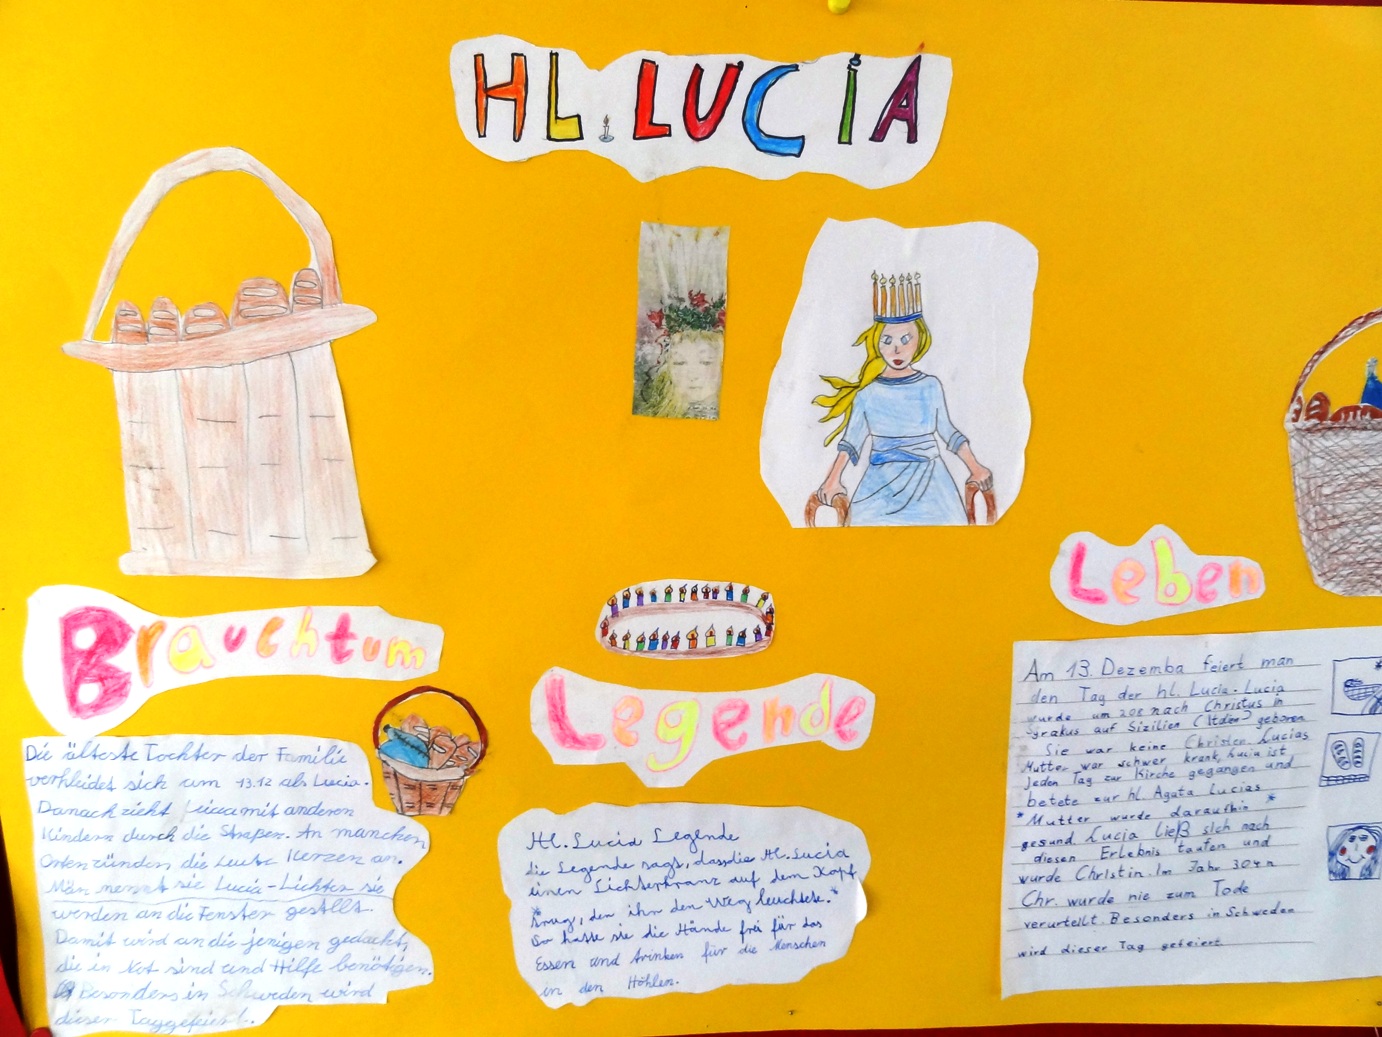 HL. LUCIA
Brauchtum
Die älteste Tochter der Familie
verkleidet sich um 13.12 als Lucia.
Danach zieht Lucia mit anderen
Kindern durch die Straßen. An manchen
Orten zünden die Leute Kerzen an.
Man nennt sie Lucia-Lichter sie
werden an die Fenster gestellt.
Damit wird an die jenigen gedacht,
die in Not sind und Hilfe benötigen.
Besonders in Schweden wird
dieser Tag gefeiert.
Legende
Hl. Lucia Legende
die Legende sagt, dass die Hl. Lucia
einen Lichterkranz auf dem Kopf
*trug, den ihr den Weg leuchtete.*
So hatte sie die Hände frei für das
Essen und trinken für die Menschen
in den Höhlen.
Leben
Am 13. Dezemba feiert man
den Tag der hl. Lucia. Lucia
wurde um 208 nach Christus in
Syrakus auf Sizilien geboren
Sie war keine Christen. Lucias
Mutter war schwer krank, Lucia ist
jeden Tag zur Kirche gegangen und
betete zur hl. Agata Lucias
*Mutter wurde daraufhin *
gesund. Lucia ließ sich nach
diesen Erlebnis taufen und
wurde Christin. Im Jahr 304 n
Chr. wurde sie zum Tode
verurteilt. Besonders in Schweden
wird dieser Tag gefeiert